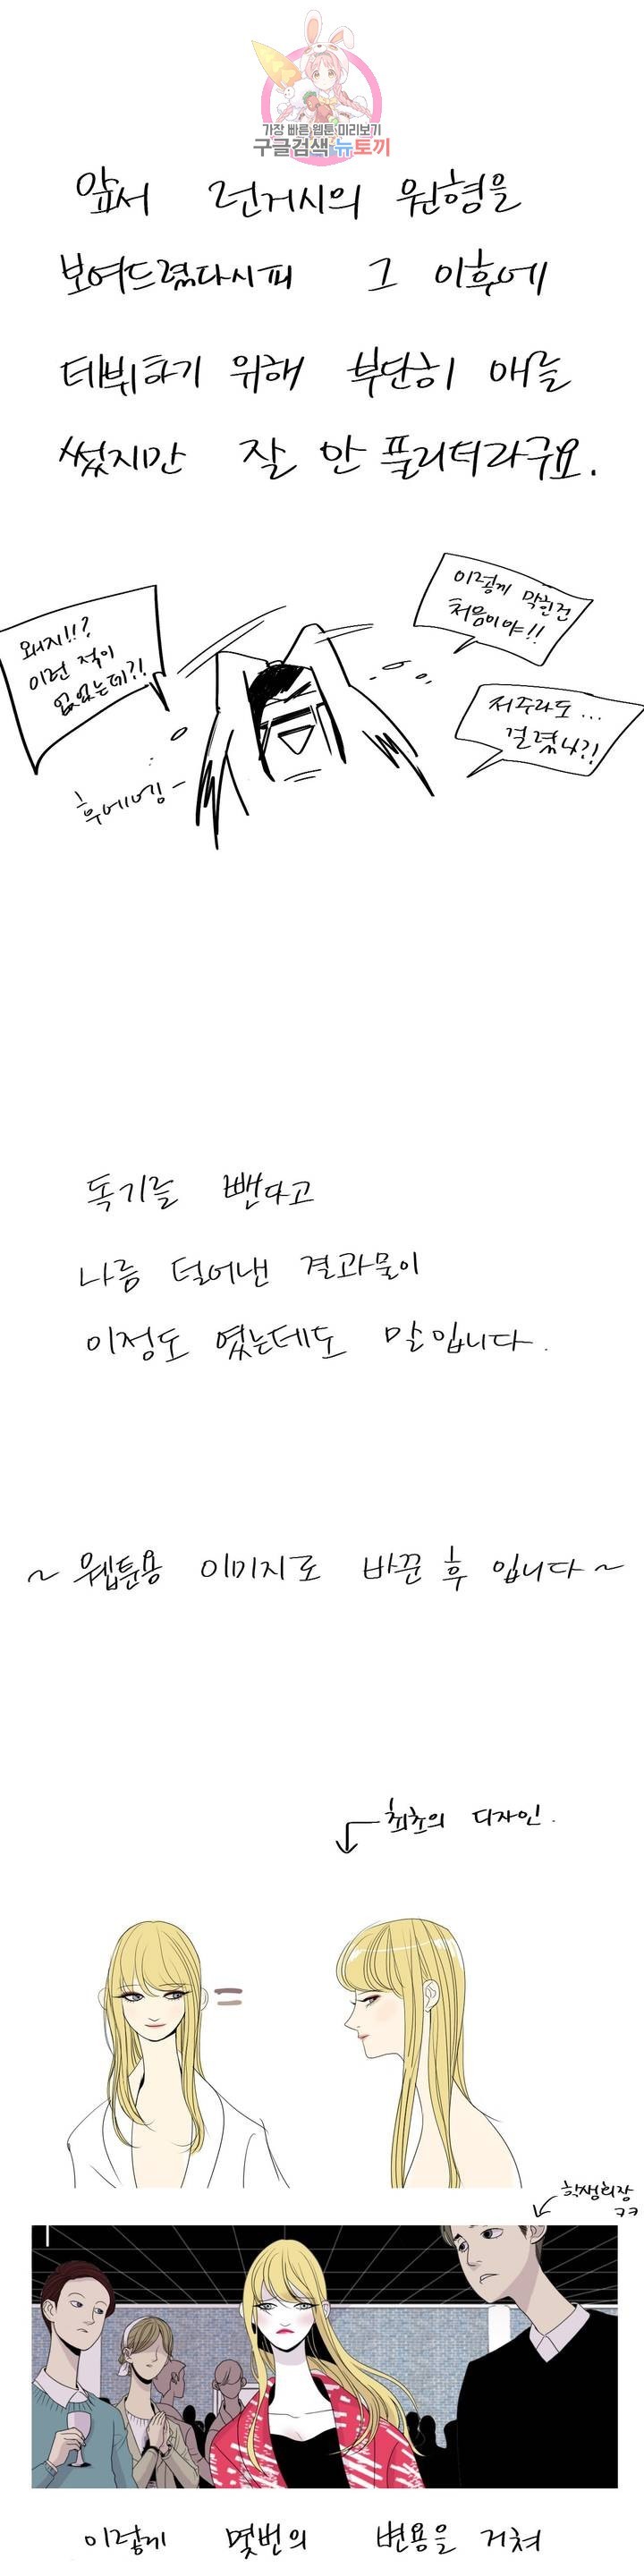 가장 빠른 웹툰 미리보기
구글검색 뉴토끼
앞서 런거시의 원형을
보여드렸다시피 그 이후에
데뷔하기 위해 부단히 애를
썼지만 잘 안 풀리더라구요.
왜지!!?
이런 적이
없었는데?!
이렇게 막힌건
처음이야!!
저주라도...
걸렸나?!
후에엥~
독기를 뺀다고
나름 덜어낸 결과물이
이정도 였는데도 말입니다.
~ 웹툰용 이미지로 바꾼 후 입니다 ~
최초의 디자인.
학생회장
ㅋㅋ
이렇게 몇번의 변용을 거쳐